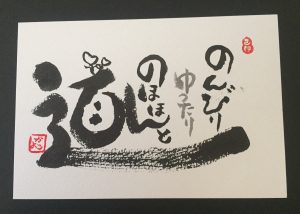 のんびり
ゆったり
のほほんと
道